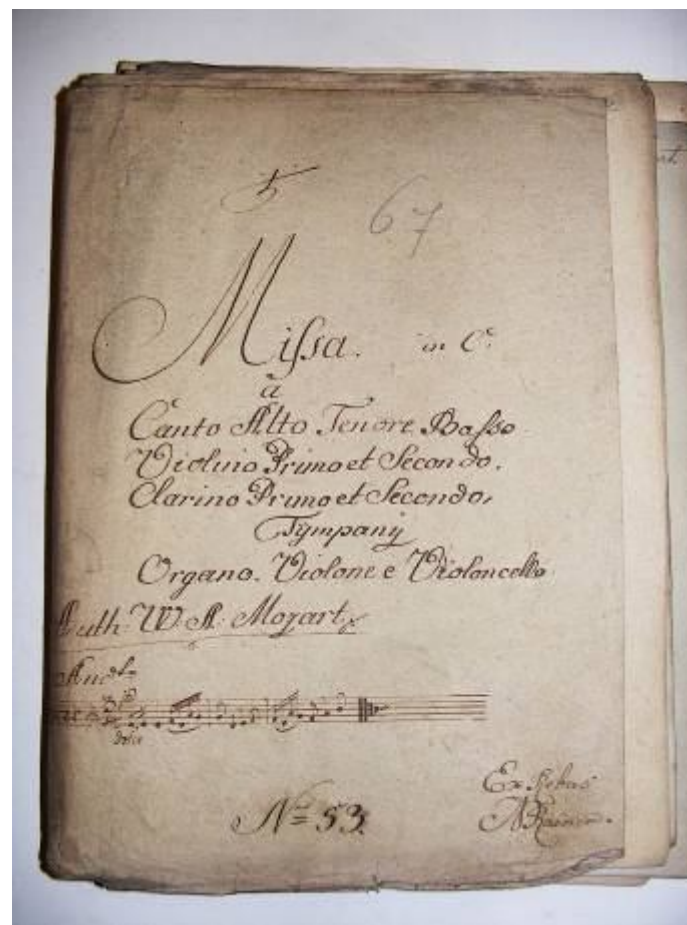 5
67
Missa. in C.
a
Canto Alto Tenore Basso
Violino Primo et Secondo.
Clarino Primo et Secondo,
Tympany
Organo. Violone e Violoncello
Auth: W: A: Mozart
And:te
dolce
No= 53.
Ex Rebus